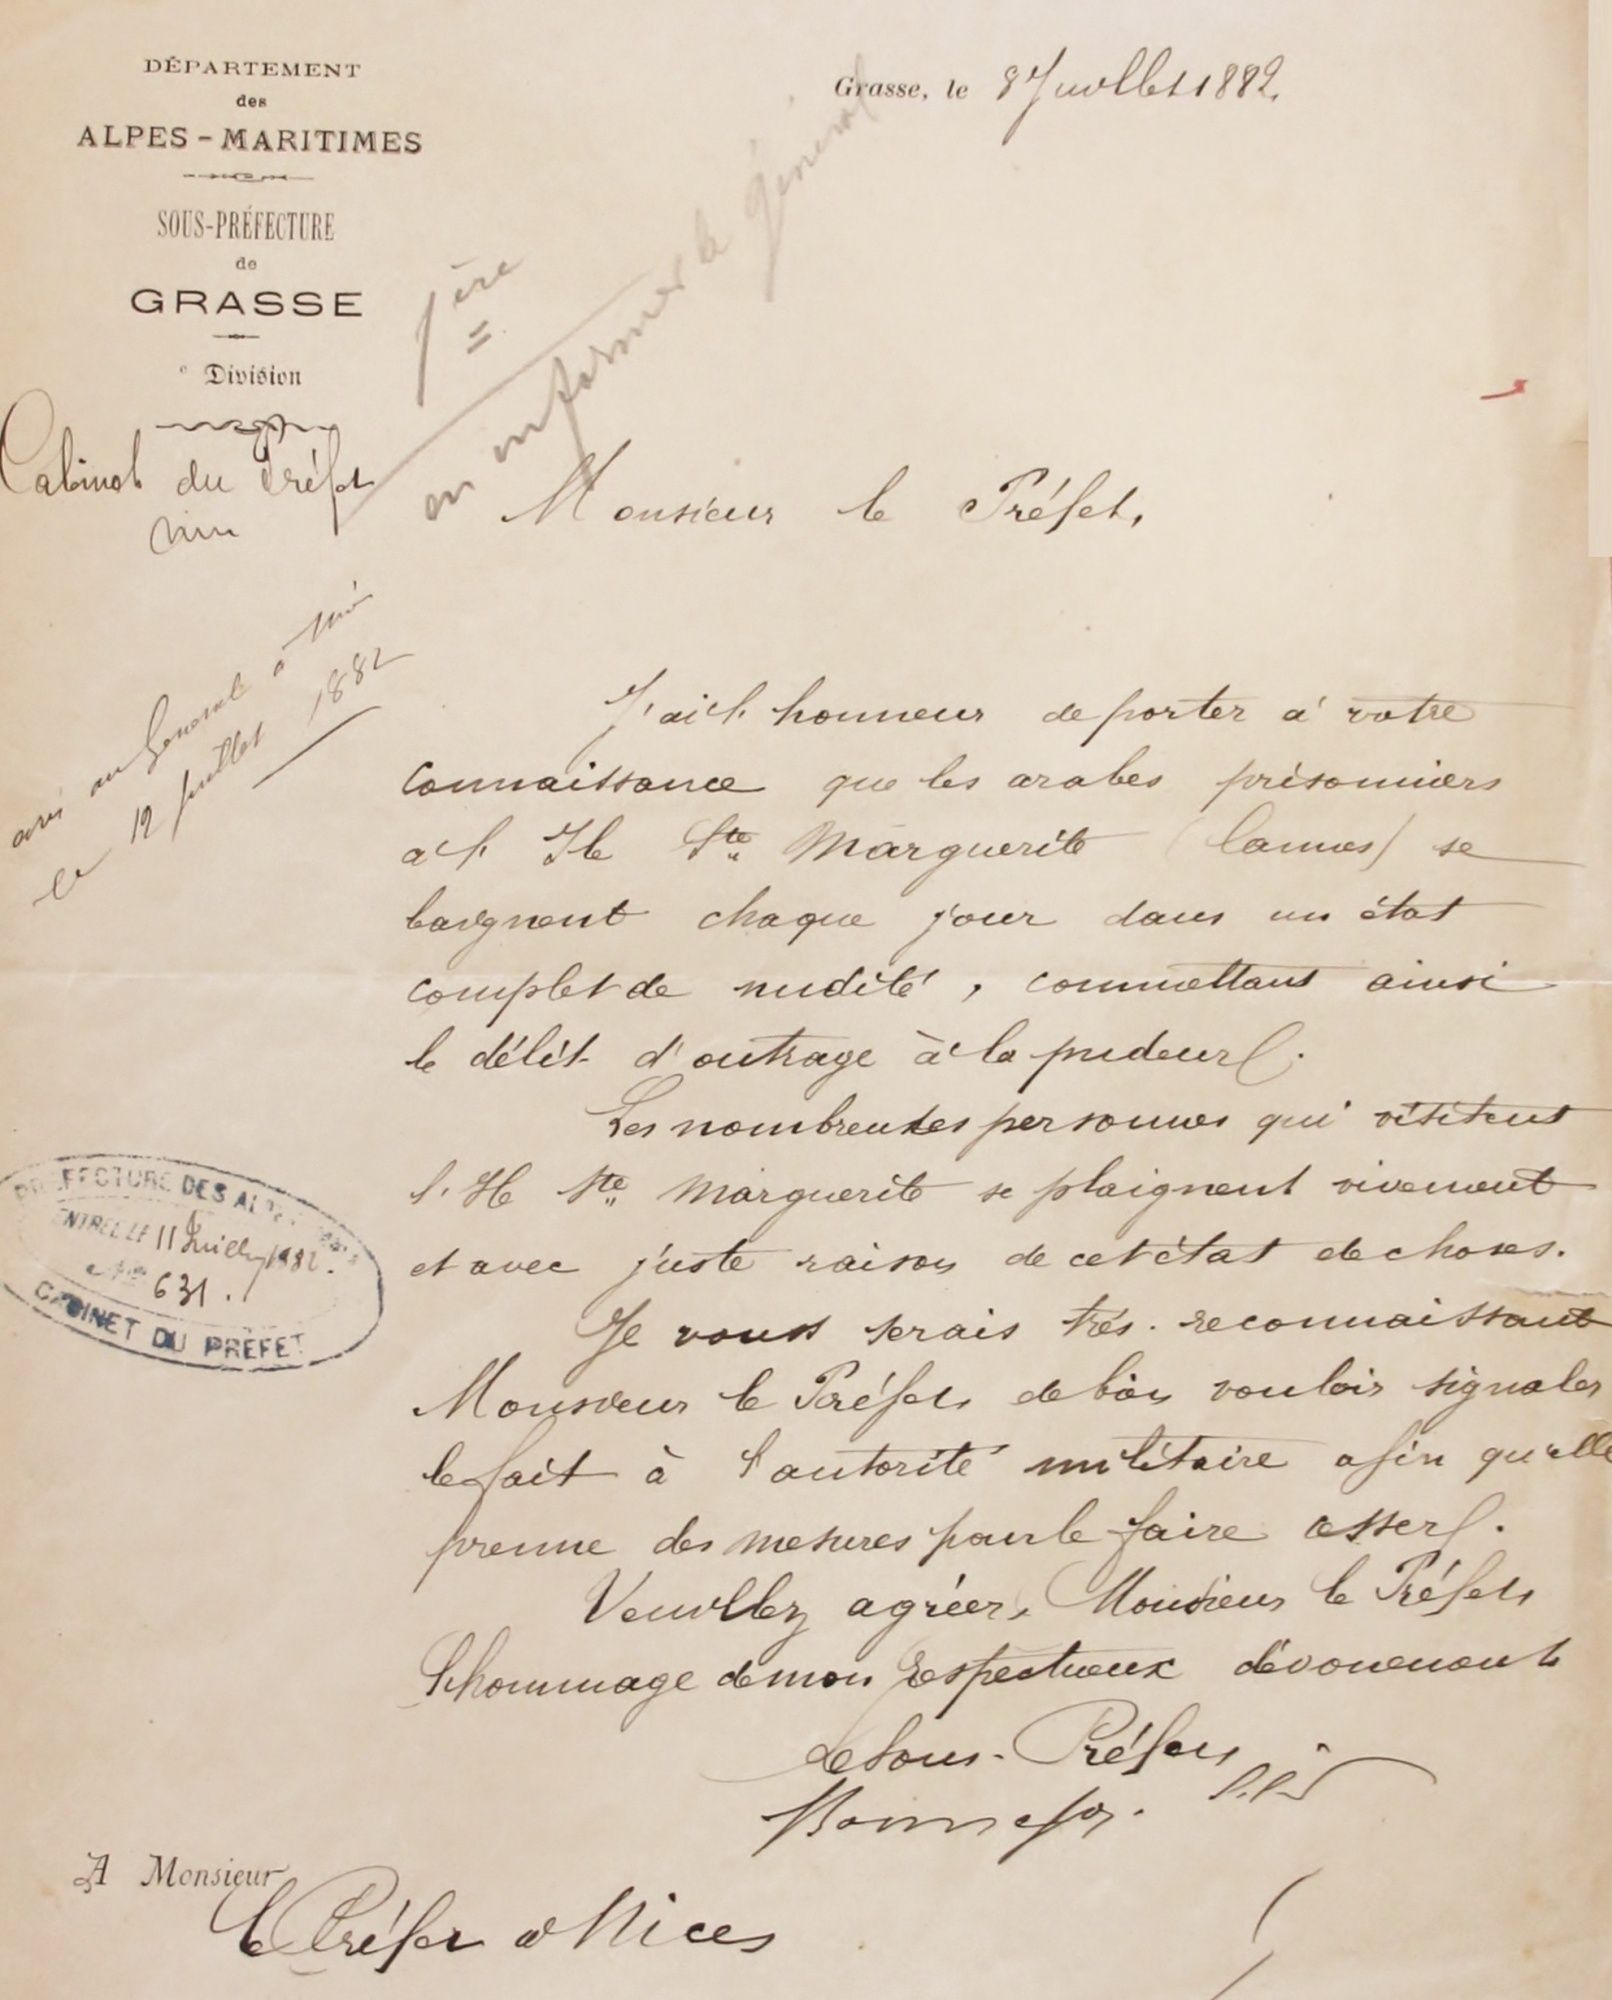 DÉPARTEMENT
des
ALPES-MARITIMES
SOUS-PRÉFECTURE
de
GRASSE
e Division
Cabinet du Préfet
Grasse, le 8 Juillet 1882.
1ère
en informer le général
Monsieur le Préfet,
avis au Général à
le 12 juillet 1882
J'ai l'honneur de porter à votre
connaissance que les arabes prisonniers
à l'Ile Ste Marguerite (Cannes) se
baignent chaque jour dans un état
complet de nudité, commettant ainsi
le délit d'outrage à la pudeur.
Les nombreuses personnes qui visitent
l'Ile Ste Marguerite se plaignent vivement
et avec juste raison de cet état de choses.
Je vous serais très reconnaissant
Monsieur le Préfet, de bien vouloir signaler
le fait à l'autorité militaire afin qu'elle
prenne des mesures pour le faire cesser.
Veuillez agréer, Monsieur le Préfet,
l'hommage de mon respectueux dévouement
Le Sous-Préfet
PRÉFECTURE DES ALPES
ENTRÉE LE 11 Juillet 1882.
No 631.
CABINET DU PRÉFET
A Monsieur
le Préfet à Nice